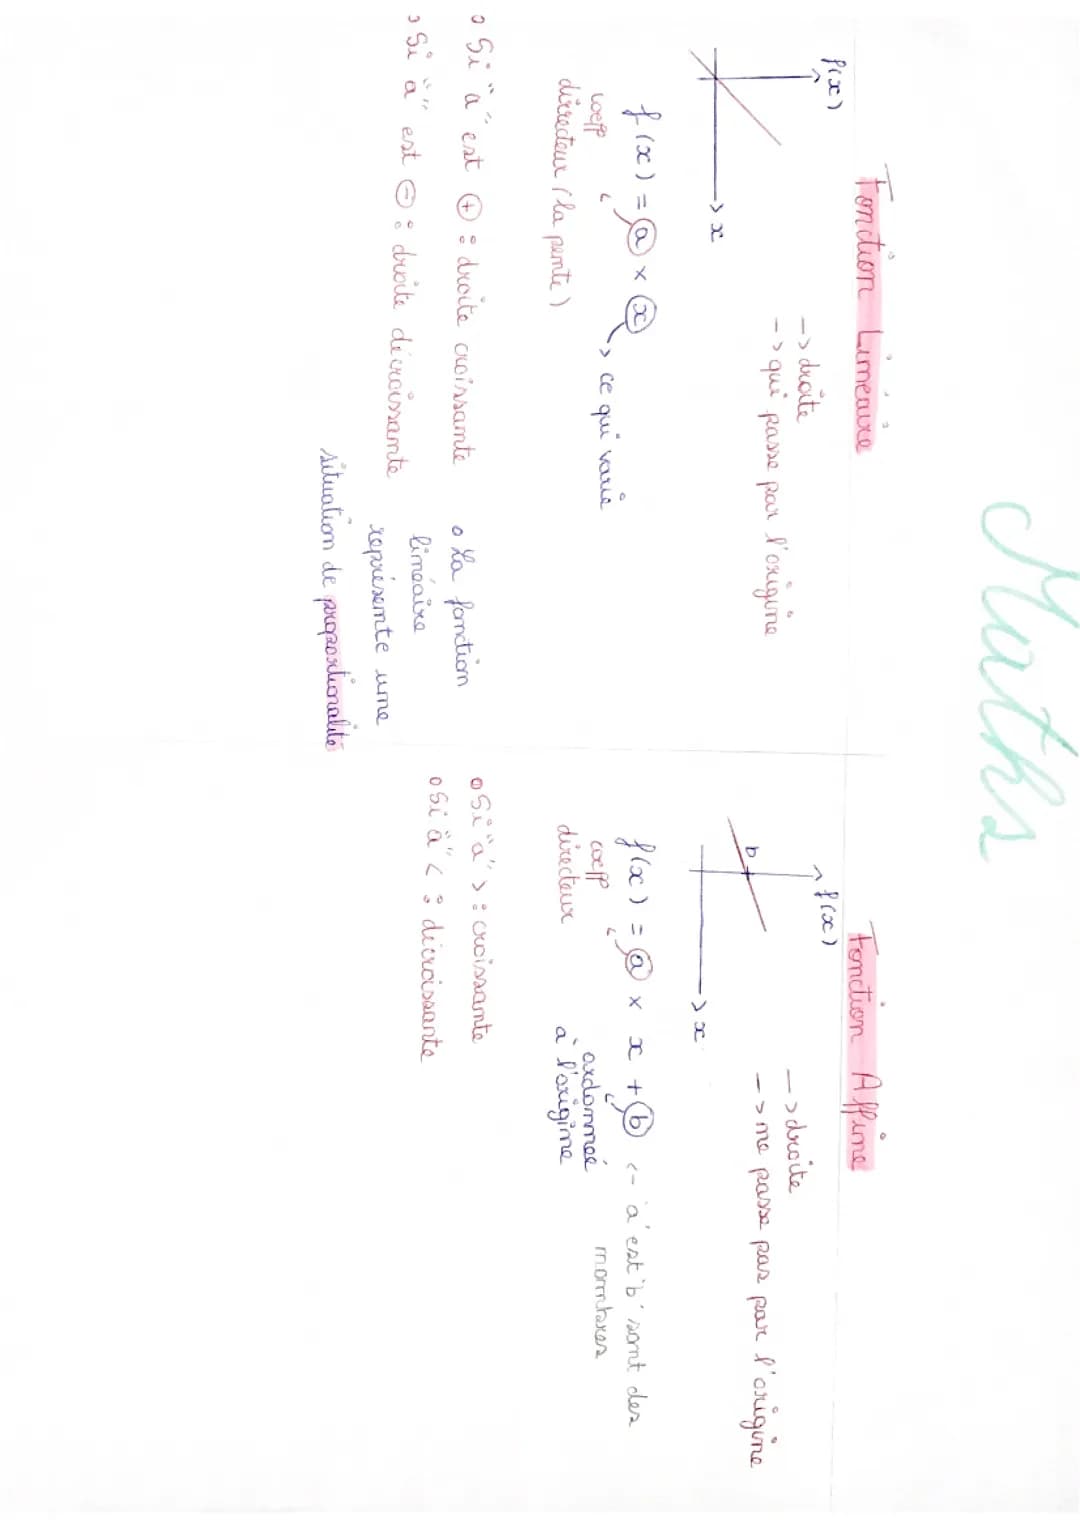 Maths
Fonction Linéaire
f(x)
x
-> droite
-> qui passe par l'origine
f(x) = a × x -> ce qui varie
coeff
dirrecteur (la pente)
o Si "a" est + : droite croissante
o Si "a" est - : droite décroissante
o La fonction
linéaire
représente une
situation de proportionalité
Fonction Affine
f(x)
b
x
-> droite
-> ne passe pas par l'origine
f(x) = a × x + b <- 'a' est 'b' sont des
nombres
coeff
directeur
ordonneé
à l'origine
o Si "a" > : croissante
o Si "a" < : décroissante